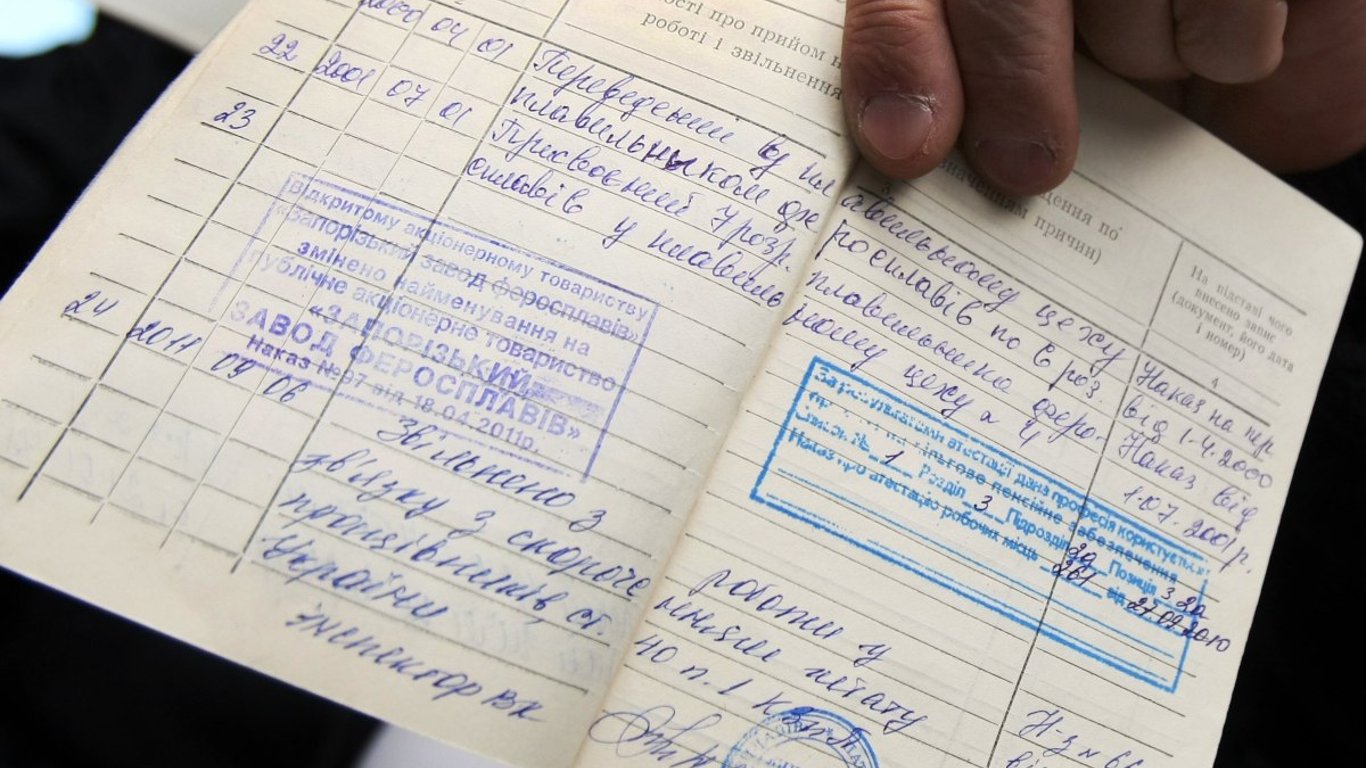 ості про прийом н
роботі і звільнення
значенням причин)
На підставі чого
внесено запис
(документ, його дата
і номер)
4
2000 04 01
22
Переведений в плавильному цеху
плавильником феросплавів по 6 роз.
Наказ на пер.
від 1.4.2000
2001 07 01
23
Присвоєний 7 розр. плавильника феро-
сплавів у плавильному цеху № 4
Наказ від
1.07.2001р.
Відкритому акціонерному товариству
«Запорізький завод феросплавів»
змінено найменування на
публічне акціонерне товариство
«ЗАПОРІЗЬКИЙ
ЗАВОД ФЕРОСПЛАВІВ»
Наказ № 97 від 18.04.2011р.
За результатами атестації дана професія користується
правом на пільгове пенсійне забезпечення
Список № 1 Розділ 3 Підрозділ 2а Позиція 3.2а
Наказ про атестацію робочих місць 261 від 27.09.2010
24
2011 09 06
Звільнено з роботи у
звязку з скороче нням штату
працівників, ст. 40 п. 1 КЗпП
України
Інспектор ВК
Н-з № 66